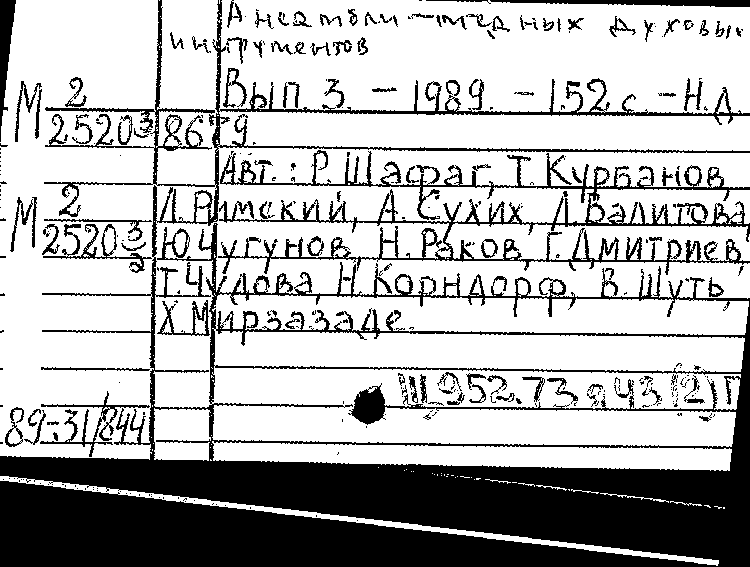 Ансамбли медных духовых
инструментов
М 2 Вып. 3. - 1989. - 152 с. - Н.д.
2520 3 8679.
Авт.: Р. Шафаг, Т. Курбанов,
М 2 Л. Римский, А. Сухих, Л. Валитова,
2520 3/2 Ю. Чугунов, Н. Раков, Г. Дмитриев,
Т. Чудова, Н. Корндорф, В. Шуть,
Х. Мирзазаде.
Щ 952.73 я 43 (2) Г
89-31/844